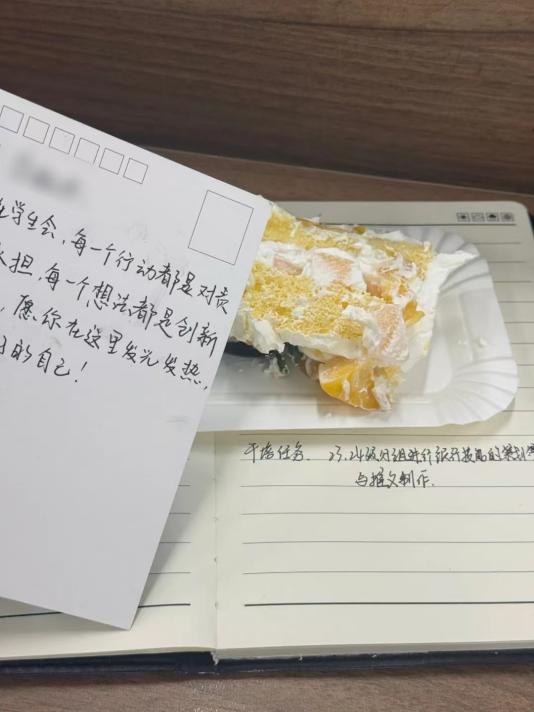 学生会,每一个行动都是对责
担,每一个想法都是创新
,愿你在这里发光发热,
的自己!
干培任务. 23.24级分组进行
与推文制作.